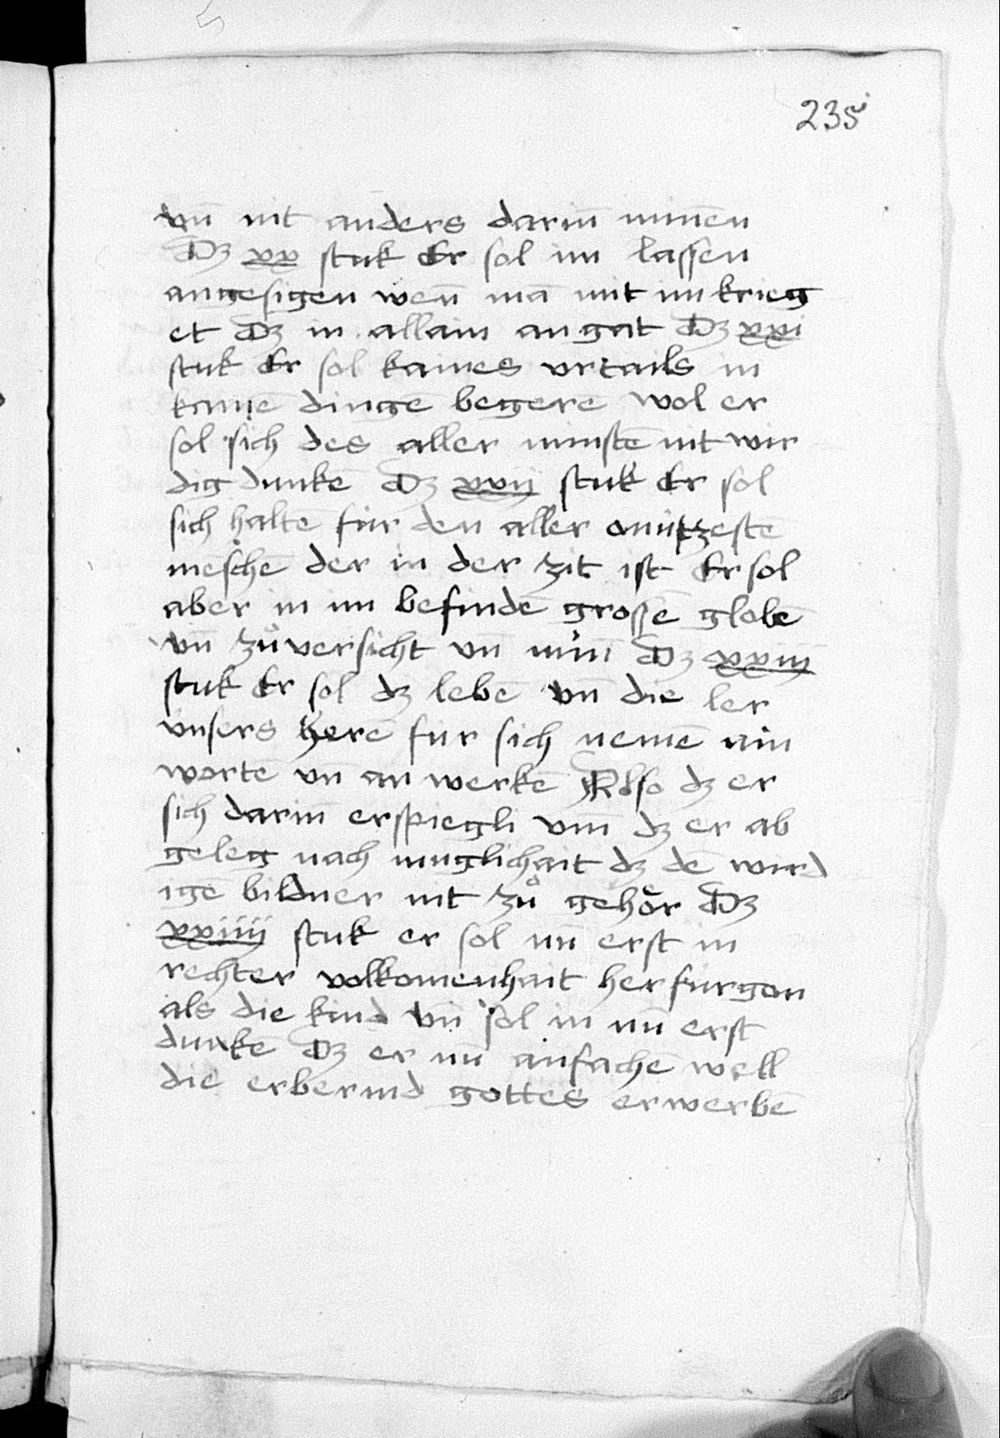 235
vn̄ nit anders darin̄ minnē
Dʒ xx stuk Er sol im lassen
angesigen wen̄ mā mit im krieg
et Dʒ in allain angat Dʒ xxi
stuk Er sol kaines vrtails in
kainē dingē begerē wol er
sol sich des aller minstē nit wir
dig dunkē Dʒ xxij stuk Er sol
sich haltē für den aller onützestē
meschē der in der zit ist Er sol
aber in im befindē grossē globē
vn̄ zůversicht vn̄ Dʒ xxiij
stuk Er sol dʒ lebē vn̄ die ler
vnsers herē für sich nemē ain
wortē vn̄ an werkē Also dʒ er
sich darin̄ erspiegli vm̄ dʒ er ab
geleg nach muglichait dʒ dē wird
igē bildner nit zů gehör Dʒ
xxiiij stuk er sol nu̅ erst in
rechter volkomenhait herfürgon
als die kind vn̄ sol in nu̅ erst
dunkē Dʒ er nu̅ anfachē well
die erbermd gottes erwerbē